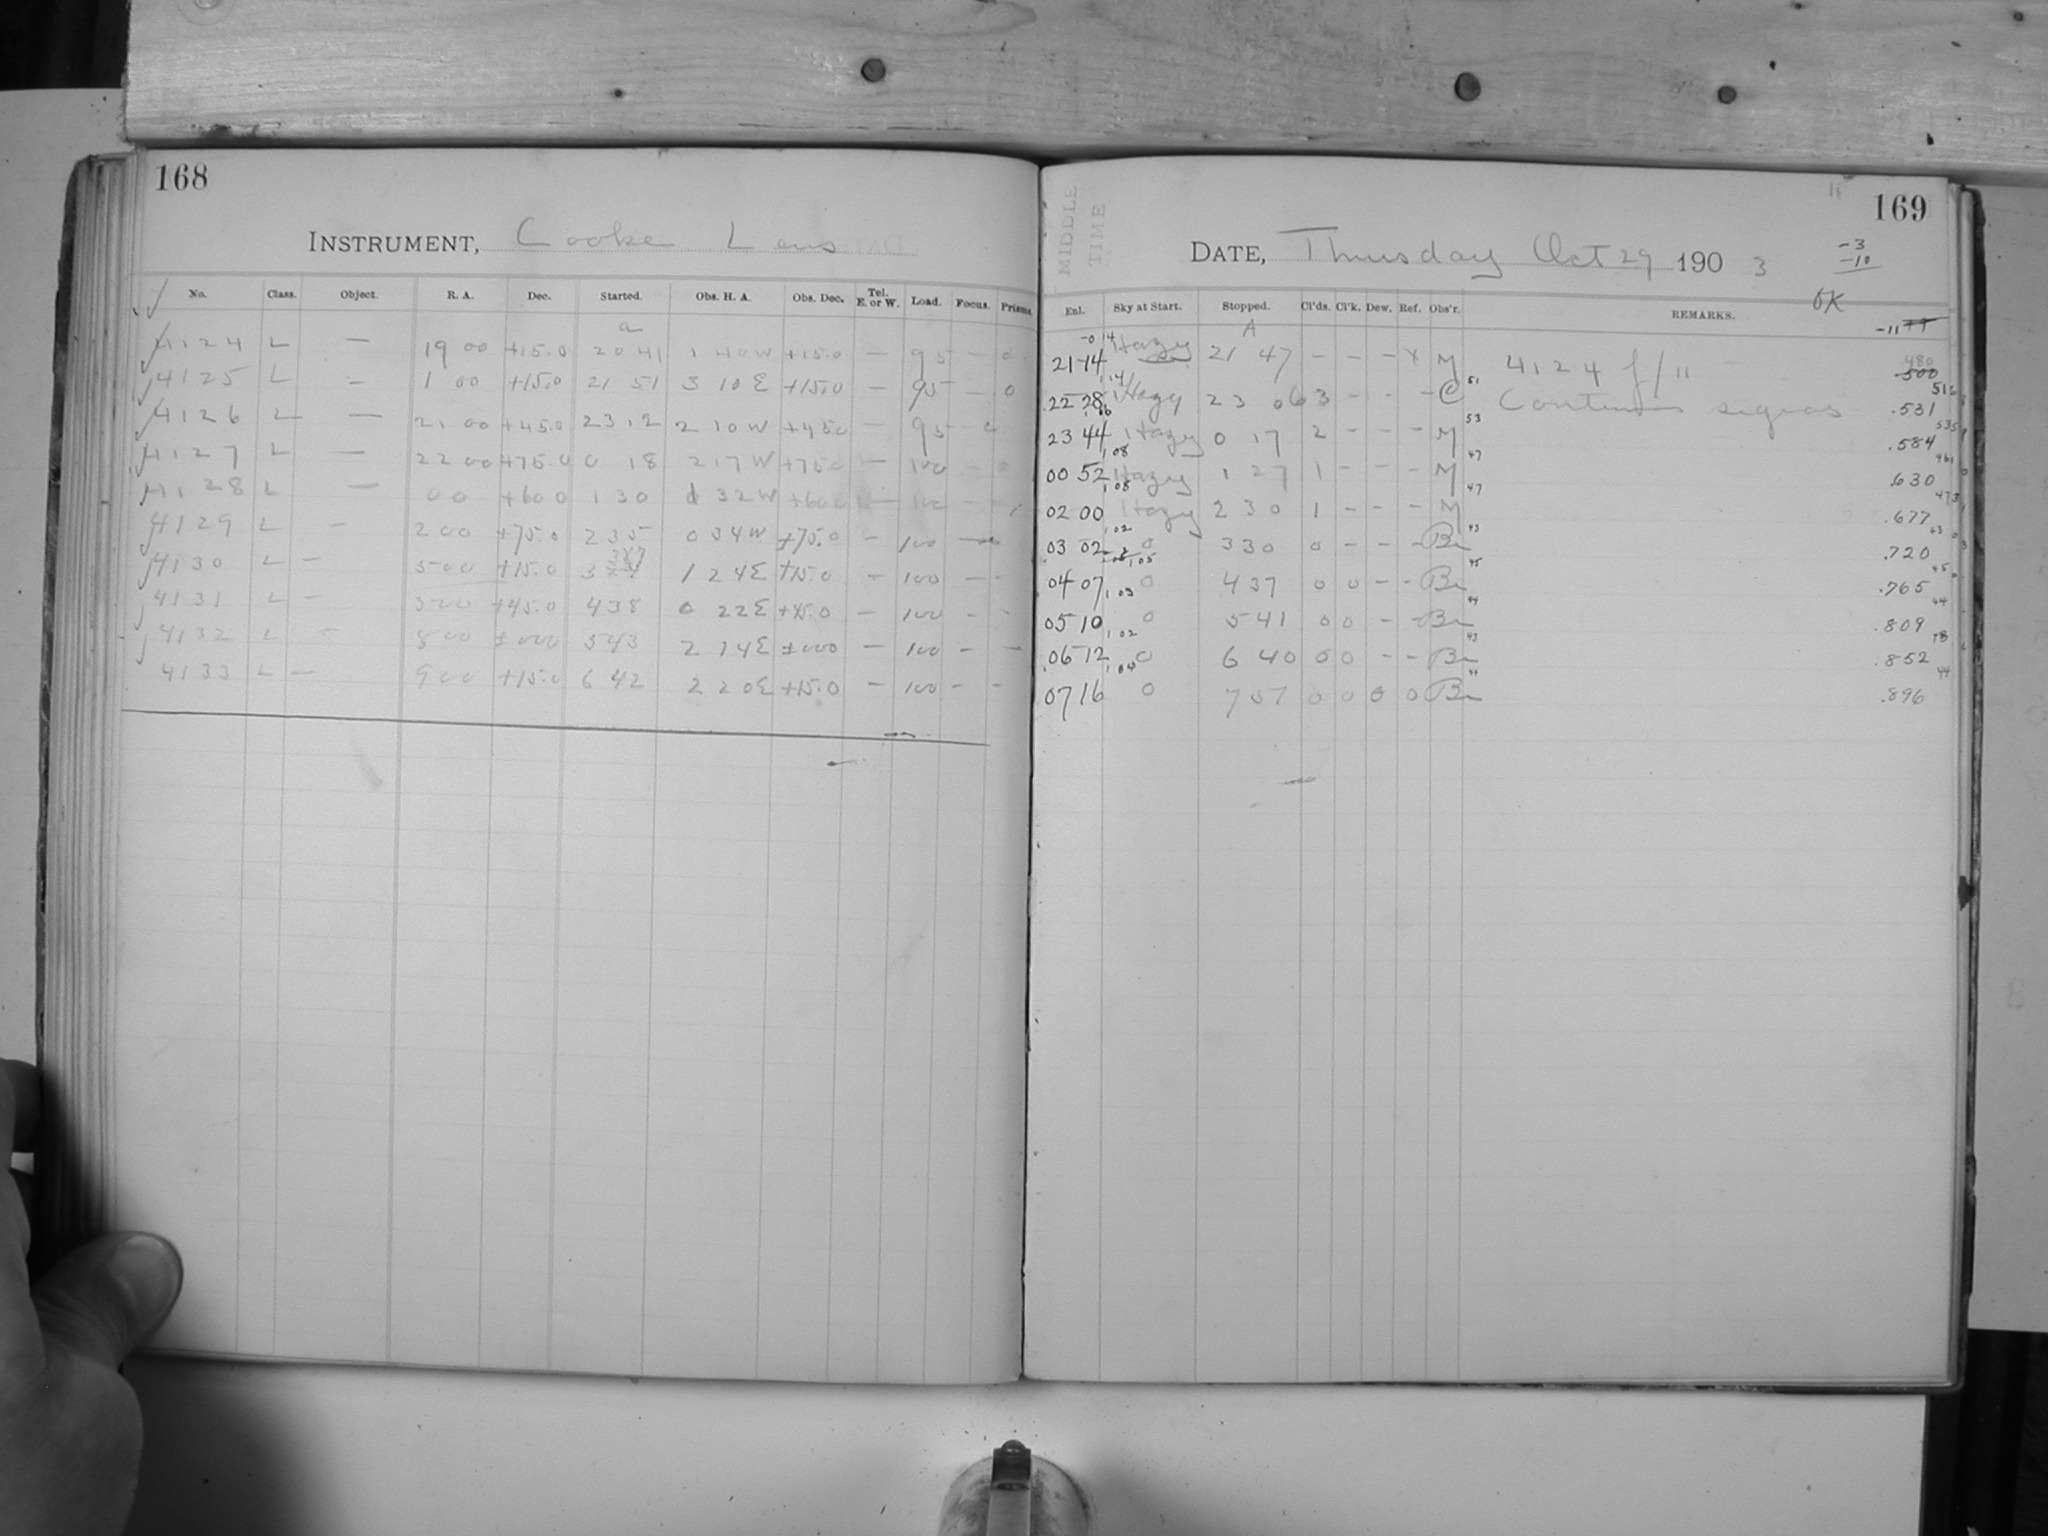 168
INSTRUMENT, Cooke Lens
No. Class. Object. R. A. Dec. Started. Obs. H. A. Obs. Dec. Tel. E. or W. Load. Focus. Prisms.
a
4124 L — 19 00 +15.0 20 41 1 40 W +15.0 — 95 — 0
4125 L — 1 00 +15.0 21 51 3 10 E +15.0 — 95 — 0
4126 L — 21 00 +45.0 23 12 2 10 W +45.0 — 95 —
4127 L — 22 00 +75.0 0 18 2 17 W +75.0 — 100 — 0
4128 L — 0 0 +60.0 1 30 32 W +60.0 — 100 —
4129 L — 2 00 +75.0 2 35 0 34 W +75.0 — 100 —
4130 L — 5 00 +15.0 3 1 24 E +15.0 — 100 — —
4131 L — 520 +45.0 438 0 22 E +45.0 — 100 — —
4132 L — 8 00 ±000 543 2 14 E ±000 — 100 — —
4133 L — 9 00 +15.0 6 42 2 20 E +15.0 — 100 — —
169
MIDDLE TIME
DATE, Thursday Oct 29 1903
-3
-10
OK
Enl. Sky at Start. Stopped. Cl'ds. Cl'k. Dew. Ref. Obs'r. REMARKS.
A
-11
21 14 Hazy 21 47 — — — x M 4124 f/11 480 500
22 28 Hazy 23 06 3 — — — C Continuous .531
23 44 Hazy 0 17 2 — — — M .584
00 52 Hazy 1 27 1 — — — M .630
02 00 Hazy 2 30 1 — — — M .677
03 02 0 3 30 0 — — — Br .720
04 07 0 4 37 0 0 — — Br .765
05 10 0 5 41 0 0 — — Br .809
06 12 0 6 40 0 0 — — Br .852
07 16 0 7 0 0 0 0 Br .896